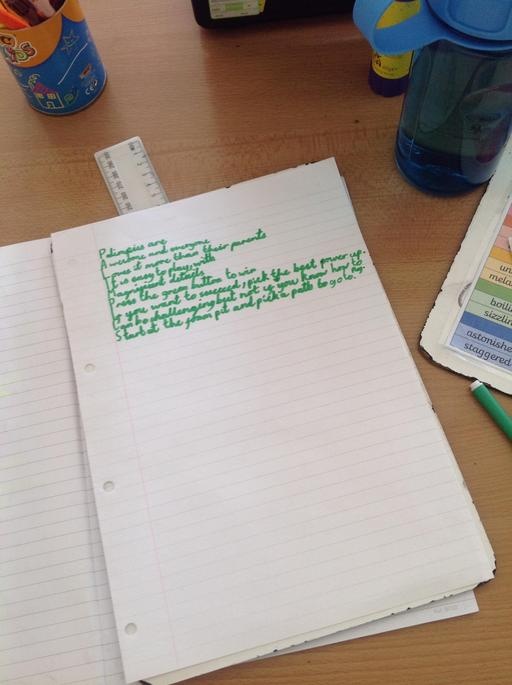 Palimpies are
Awesome and everyone
Loves it more than their parents
It is easy to play, with
Magnificent details
Press the green button to win
If you want to succeed, pick the best power up.
Can be challenging but not if you know how to
Start at the foam pit and pick a path to go to.
un
mela
boili
sizzlin
astonished
staggered